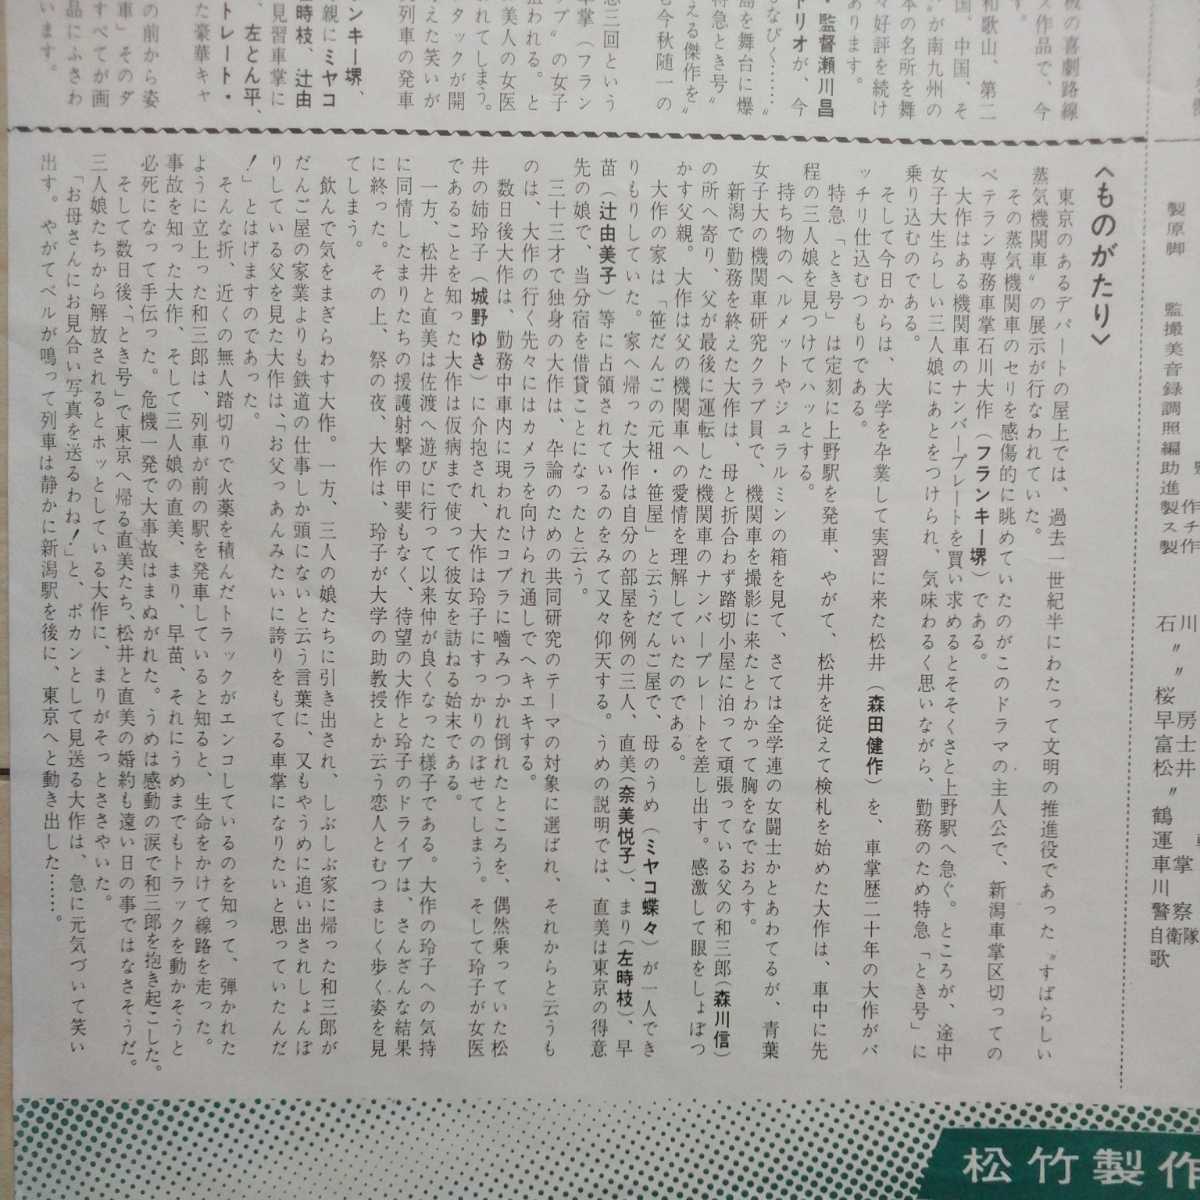 板の喜劇路線
ス作品で、今
す。
和歌山、第二
国、中国、そ
〃が南九州の
本の名所を舞
々好評を続け
あります。
・監督瀬川昌
トリオが、今
もなびく……〟
島を舞台に爆
特急とき号〟
える傑作を〟
も今秋随一の
急三回という
車掌（フラン
プ〟の女子
狙われる。と
美人の女医
れてしまう。
タックが開
えた笑いが
列車の発車
ンキー堺、
親にミヤコ
左時枝、辻由
見習車掌に
、左とん平、
トレート・
た豪華キャ
の前から姿
車」そのダ
すべてが画
品にふさわ
います。
〈ものがたり〉
東京のあるデパートの屋上では、過去一世紀半にわたって文明の推進役であった〝すばらしい
蒸気機関車〟の展示が行なわれていた。
その蒸気機関車のセリを感傷的に眺めていたのがこのドラマの主人公で、新潟車掌区切っての
ベテラン専務車掌石川大作（フランキー堺）である。
大作はある機関車のナンバープレートを買い求めるとそそくさと上野駅へ急ぐ。ところが、途中
女子大生らしい三人娘にあとをつけられ、気味わるく思いながら、勤務のため特急「とき号」に
乗り込むのである。
そして今日からは、大学を卒業して実習に来た松井（森田健作）を、車掌歴二十年の大作がバ
ッチリ仕込むつもりである。
特急「とき号」は定刻に上野駅を発車、やがて、松井を従えて検札を始めた大作は、車中に先
程の三人娘を見つけてハッとする。
持ち物のヘルメットやジュラルミンの箱を見て、さては全学連の女闘士かとあわてるが、青葉
女子大の機関車研究クラブ員で、機関車を撮影に来たとわかって胸をなでおろす。
新潟で勤務を終えた大作は、母と折合わず踏切小屋に泊って頑張っている父の和三郎（森川信）
の所へ寄り、父が最後に運転した機関車のナンバープレートを差し出す。感激して眼をしょぼつ
かす父親。大作は父の機関車への愛情を理解していたのである。
大作の家は「笹だんごの元祖・笹屋」と云うだんご屋で、母のうめ（ミヤコ蝶々）が一人でき
りもりしていた。家へ帰った大作は自分の部屋を例の三人、直美（奈美悦子）、まり（左時枝）、早
苗（辻由美子）等に占領されているのをみて又々仰天する。うめの説明では、直美は東京の得意
先の娘で、当分宿を借貸ことになったと云う。
三十三才で独身の大作は、卒論のための共同研究のテーマの対象に選ばれ、それからと云うも
のは、大作の行く先々にはカメラを向けられ通しでヘキエキする。
数日後大作は、勤務中車内に現われたコブラに噛みつかれ倒れたところを、偶然乗っていた松
井の姉玲子（城野ゆき）に介抱され、大作は玲子にすっかりのぼせてしまう。そして玲子が女医
であることを知った大作は仮病まで使って彼女を訪ねる始末である。
一方、松井と直美は佐渡へ遊びに行って以来仲が良くなった様子である。大作の玲子への気持
に同情したまりたちの援護射撃の甲斐もなく、待望の大作と玲子のドライブは、さんざんな結果
に終った。その上、祭の夜、大作は、玲子が大学の助教授とか云う恋人とむつまじく歩く姿を見
てしまう。
飲んで気をまぎらわす大作。一方、三人の娘たちに引き出され、しぶしぶ家に帰った和三郎が
だんご屋の家業よりも鉄道の仕事しか頭にないと云う言葉に、又もやうめに追い出されしょんぼ
りしている父を見た大作は、「お父っあんみたいに誇りをもてる車掌になりたいと思っていたんだ
！」とはげますのであった。
そんな折、近くの無人踏切りで火薬を積んだトラックがエンコしているのを知って、弾かれた
ように立上った和三郎は、列車が前の駅を発車していると知ると、生命をかけて線路を走った。
事故を知った大作、そして三人娘の直美、まり，早苗、それにうめまでもトラックを動かそうと
必死になって手伝った。危機一発で大事故はまぬがれた。うめは感動の涙で和三郎を抱き起こした。
そして数日後、「とき号」で東京へ帰る直美たち、松井と直美の婚約も遠い日の事ではなさそうだ。
三人娘たちから解放されるとホッとしている大作に、まりがそっとささやいた。
「お母さんにお見合い写真を送るわね！」と、ポカンとして見送る大作は、急に元気づいて笑い
出す。やがてベルが鳴って列車は静かに新潟駅を後に、東京へと動き出した……。
製原脚
監撮美音録調照編助進製ス製
作チ作
石〃〃桜早富松〃鶴運車川警自衛隊歌
川
房士井
掌
察
松竹製作